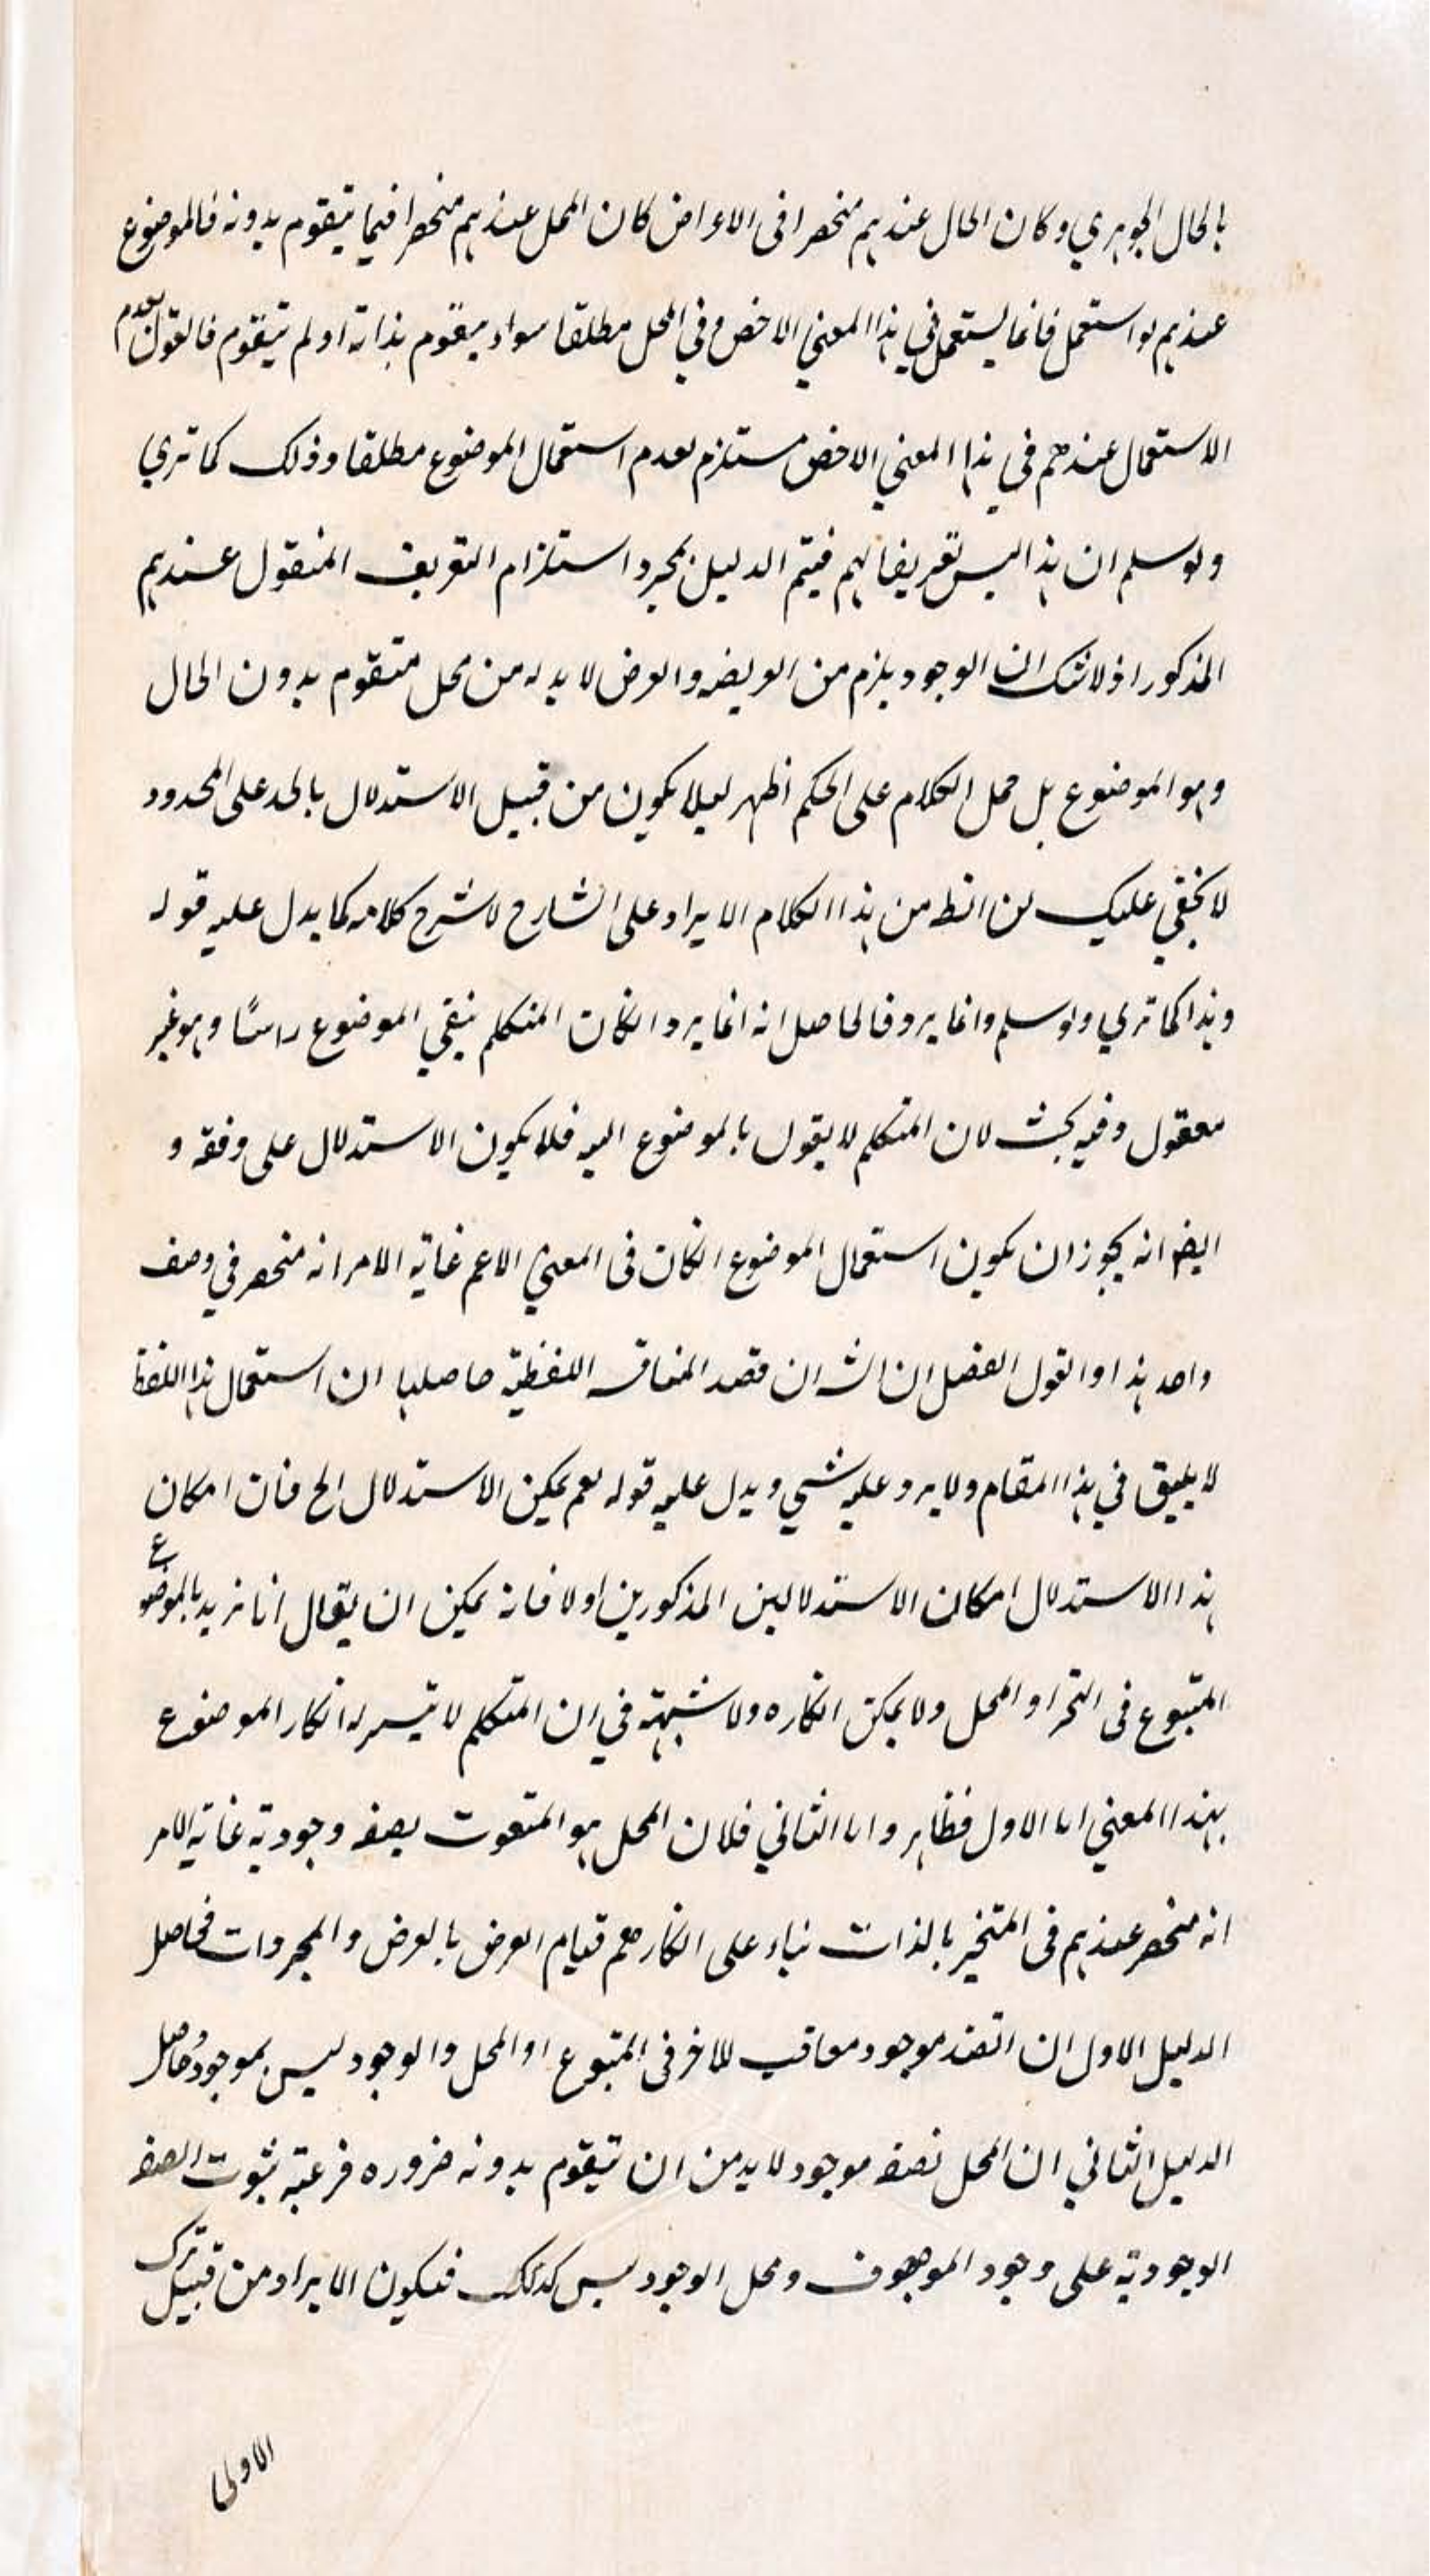 بالحال الجوهري وكان الحال عندهم منحصرا فى الاعراض كان المحل عندهم منحصرا فيما يتقوم بدونه فالموضوع
عندهم لو استعمل فانما يستعمل في هذا المعني الاخص و في المحل مطلقا سواء يتقوم بذاته او لم يتقوم فالقول بعدم
الاستعمال عندهم في هذا المعني الاخص مستلزم لعدم استعمال الموضوع مطلقا وذلك كما تري
ولو سلم ان هذا ليس تعريفا لهم فيتم الدليل بمجرد استلزام التعريف المنقول عندهم
المذكور اذ لا شك ان الوجود يلزم من العرض لا بد له من محل متقوم بدون الحال
وهو الموضوع بل حمل الكلام على الحكم اظهر ليلا يكون من قبيل الاستدلال بالحد على المحدود
لا يخفي عليك ان الظ من هذا الكلام الايراد على الشارح لا شرح كلامه كما يدل عليه قوله
وهذا كما تري ولو سلم وانما يرد فالحاصل انه انما يرد انكان المتكلم ينفي الموضوع راسًا وهو غير
معقول وفيه بحث لان المتكلم لا يقول بالموضوع اليه فلا يكون الاستدلال على وفقه و
ايضا انه يجوز ان يكون استعمال الموضوع انكان فى المعني الاعم غاية الامر انه منحصر في وصف
واحد هذا والقول الفصل ان الش ان قصد المناقشه اللفظية حاصلها ان استعمال هذا اللفظ
لا يليق في هذا المقام ولا يرد عليه شي ويدل عليه قوله نعم يمكن الاستدلال الخ فان امكان
هذا الاستدلال امكان الاستدلالين المذكورين اولا فانه يمكن ان يقال انا نريد بالموضوع
المتبوع فى التحيز او المحل ولا يمكن انكاره ولا شبهة في ان المتكلم لا يتيسر له انكار الموضوع
بهذا المعني اما الاول فظاهر واما الثاني فلان المحل هو المنعوت بصفه وجودية غاية الامر
انه منحصر عندهم فى المتحيز بالذات بناء على انكارهم قيام العرض بالعرض والمجردات فحاصل
الدليل الاول ان الضد موجود معاقب للاخر فى المتبوع او المحل والوجود ليس بموجود وحاصل
الدليل الثاني ان المحل بصفه موجود لا بد من ان يتقوم بدونه ضروره فرعية ثبوت الصفه
الوجودية على وجود الموصوف ومحل الوجود ليس كذلك فيكون الايراد من قبيل ترك
الاولى